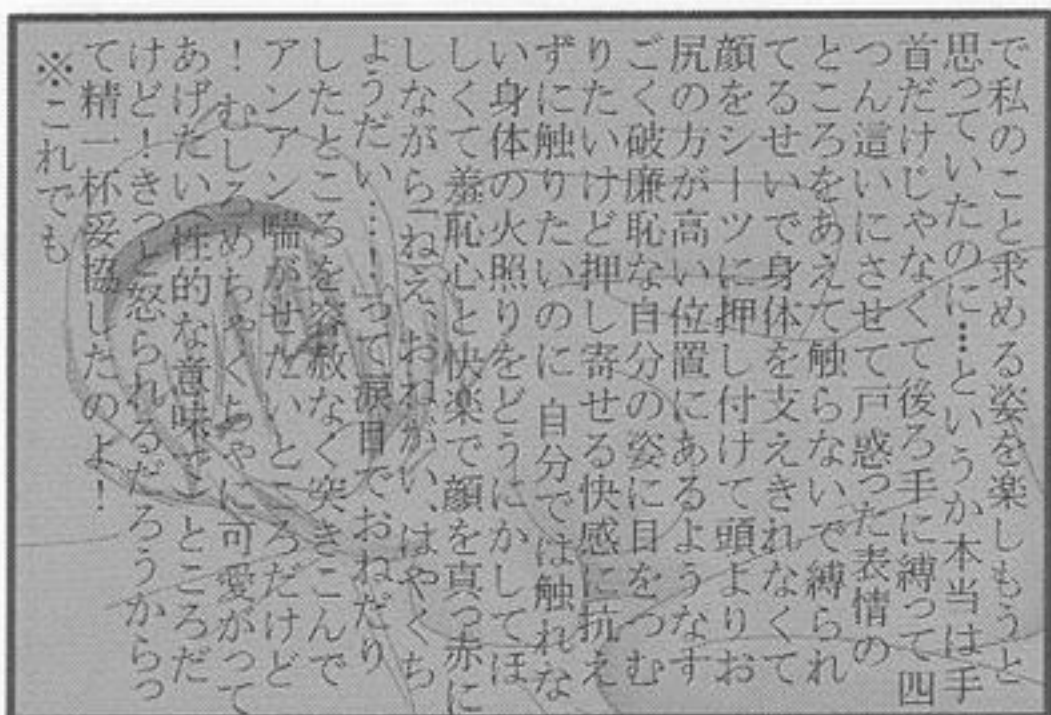 で私のこと求める姿を楽しもうと
思っていたのに…というか本当は手
首だけじゃなくて後ろ手に縛って四
つん這いにさせて戸惑った表情の
ところをあえて触らないで縛られ
てるせいで身体を支えきれなくて
顔をシーツに押し付けて頭よりお
尻の方が高い位置にあるようなす
ごく破廉恥な自分の姿に目をつむ
りたいけど押し寄せる快感に抗え
ずに触りたいのに自分では触れな
い身体の火照りをどうにかしてほ
しくて羞恥心と快楽で顔を真っ赤に
しながら「ねえ、おねがい、はやくち
ょうだい…!」って涙目でおねだり
したところを容赦なく突きこんで
アンアン喘がせたいところだけど
!むしろめちゃくちゃに可愛がって
あげたい(性的な意味で)ところだ
けど!きっと怒られるだろうからっ
て精一杯妥協したのよ!
※これでも